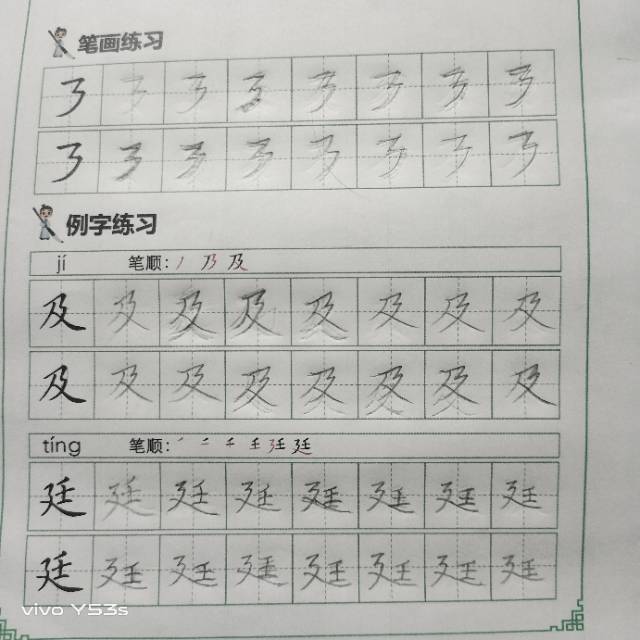 笔画练习
㇋ ㇋ ㇋ ㇋ ㇋ ㇋ ㇋ ㇋
㇋ ㇋ ㇋ ㇋ ㇋ ㇋ ㇋ ㇋
例字练习
jí 笔顺: 丿 乃 及
及 及 及 及 及 及 及 及
及 及 及 及 及 及 及 及
tíng 笔顺:
廷 廷 廷 廷 廷 廷 廷 廷
廷 廷 廷 廷 廷 廷 廷 廷
vivo Y53s